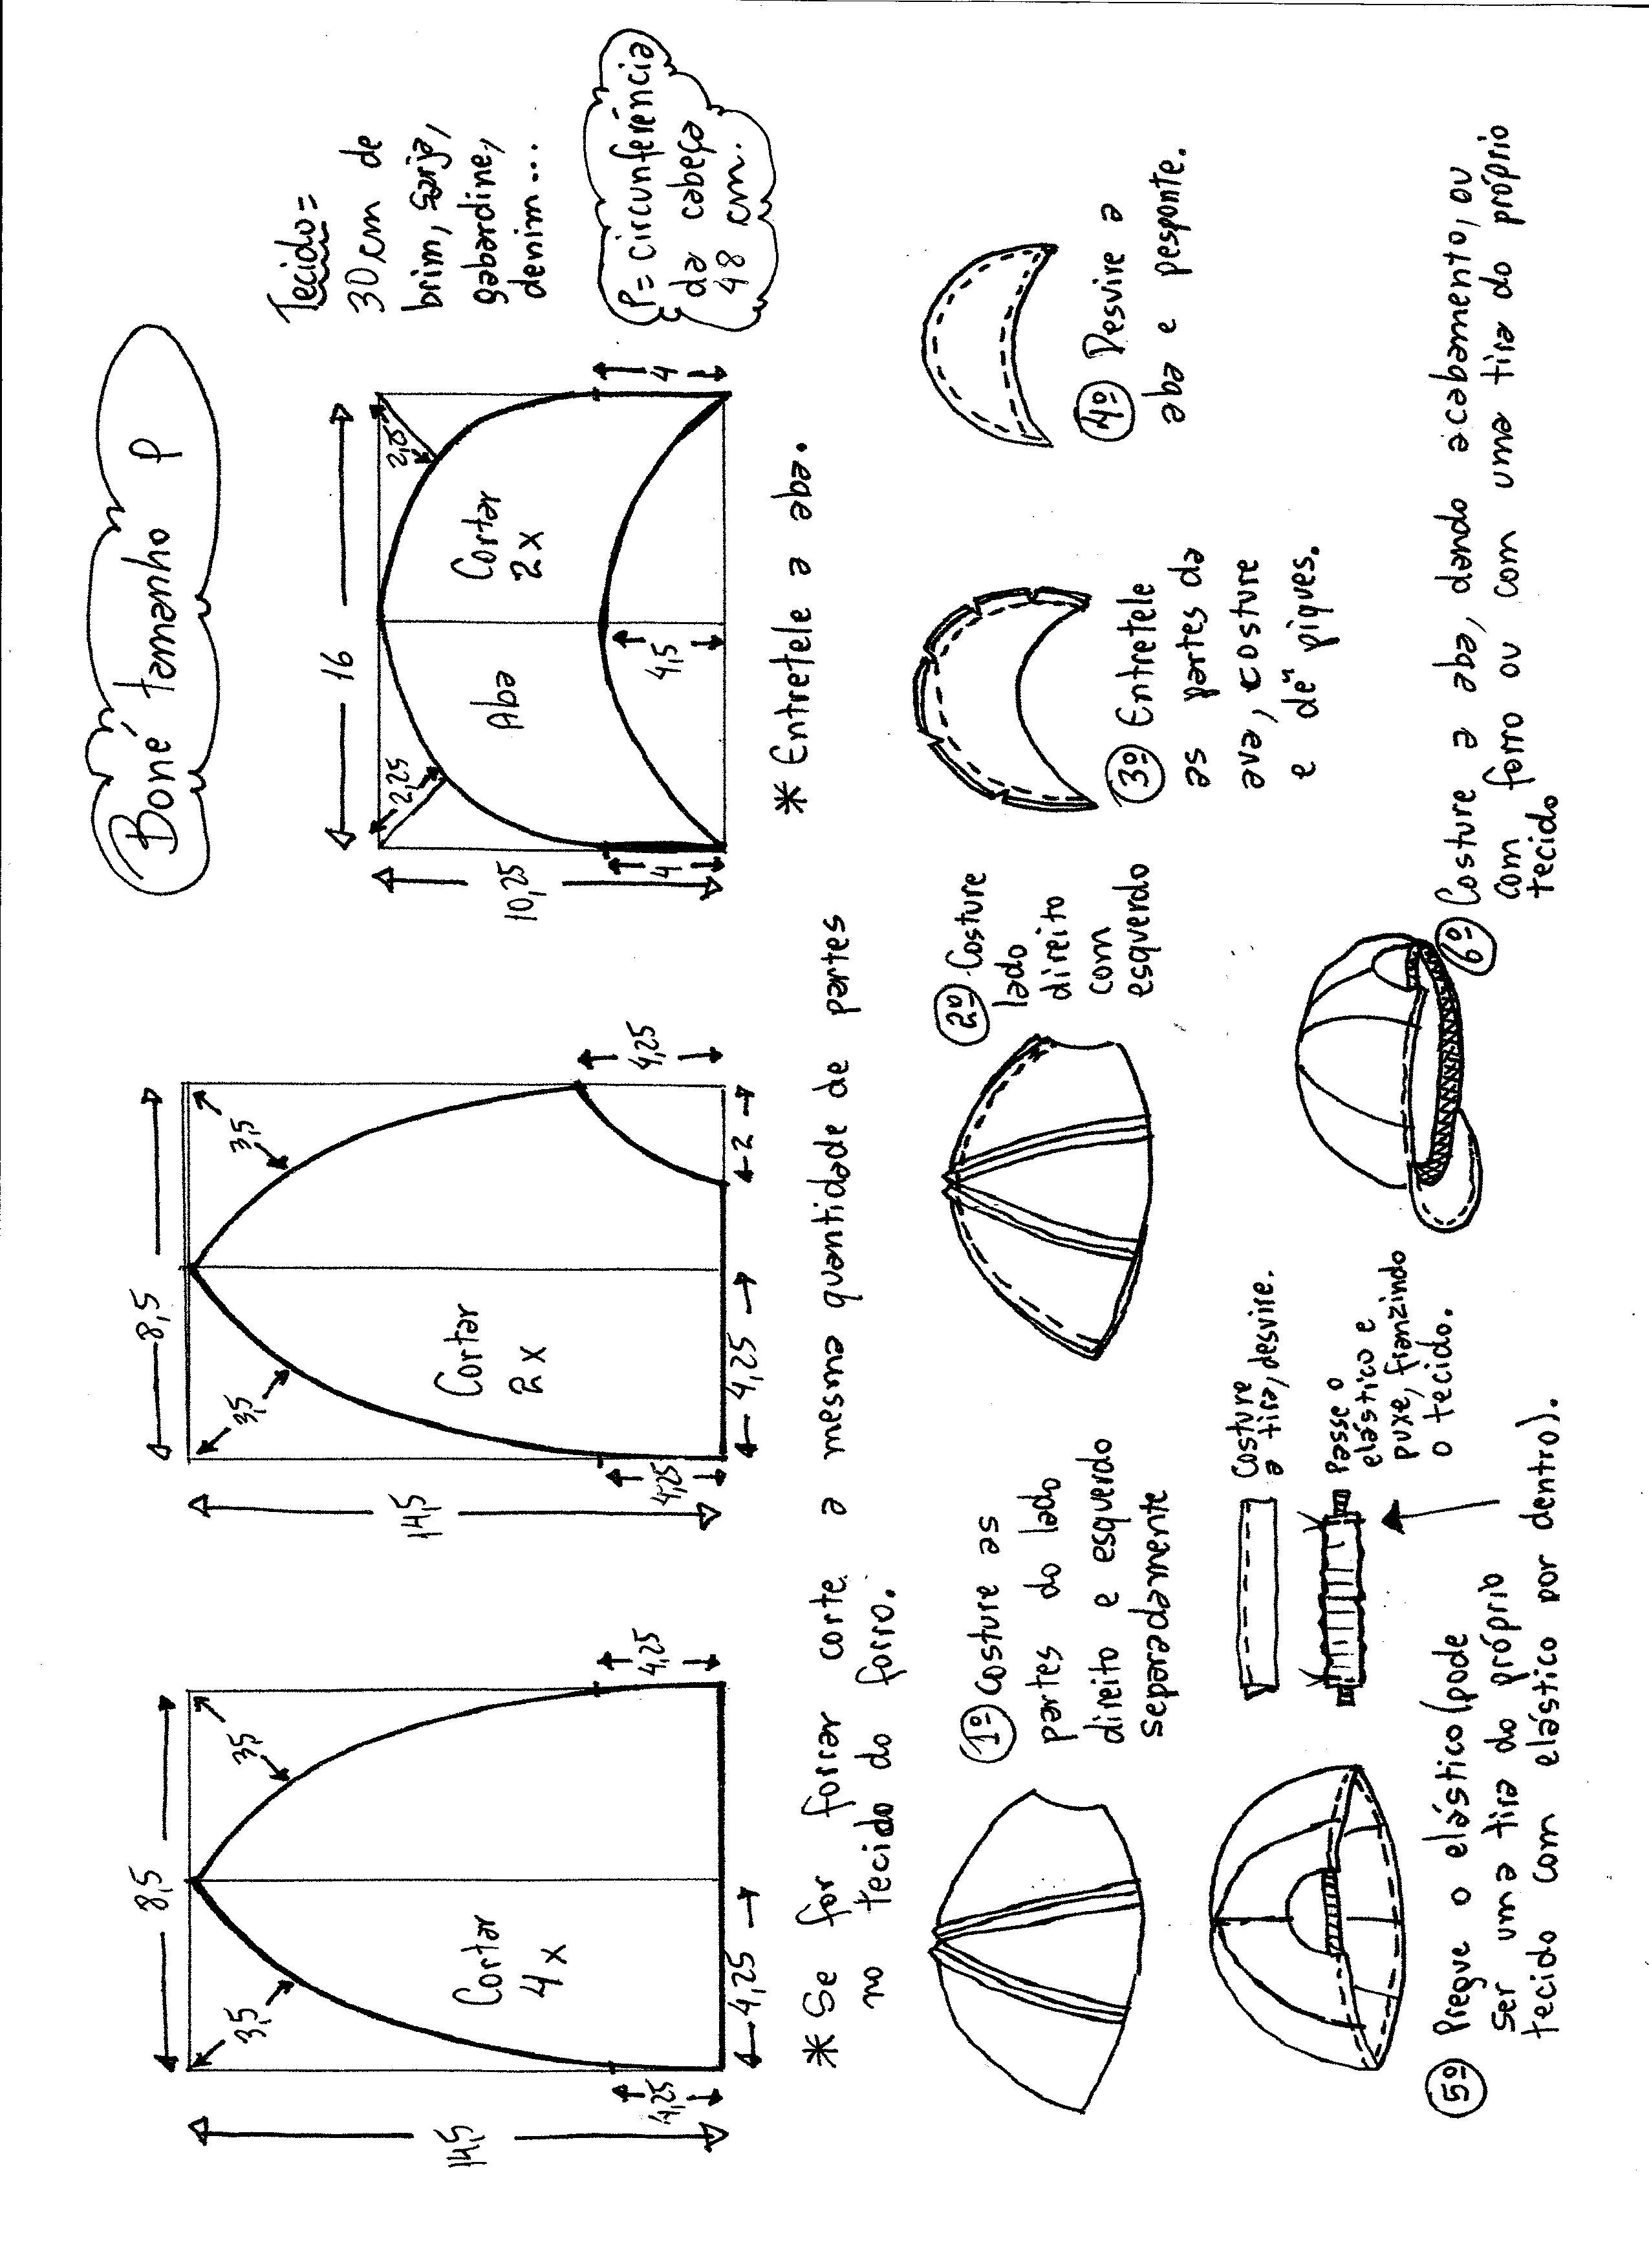 Boné tamanho P
Tecido=
30 cm de
brim, sarja,
gabardine,
denim...
P= circunferência
da cabeça
48 cm.
8,5
14,5
3,5
3,5
Cortar
4 x
4,25
4,25
4,25
8,5
14,5
3,5
3,5
Cortar
2 x
4,25
4,25
4,25
2
16
10,25
2,25
2,25
Aba
Cortar
2 x
4
4
4,5
* Entretele a aba.
* Se for forrar corte a mesma quantidade de partes
no tecido do forro.
1º Costure as
partes do lado
direito e esquerdo
separadamente
2º Costure
lado
direito
com
esquerdo
3º Entretele
as partes da
ava, costure
e dê" piques.
4º Desvire a
aba e pesponte.
5º Pregue o elástico (pode
ser uma tira do próprio
tecido com elástico por dentro).
Costure
a tira, desvire.
Passe o
elástico e
puxe, franzindo
o tecido.
6º Costure a aba, dando acabamento, ou
com forro ou com uma tira do próprio
tecido.